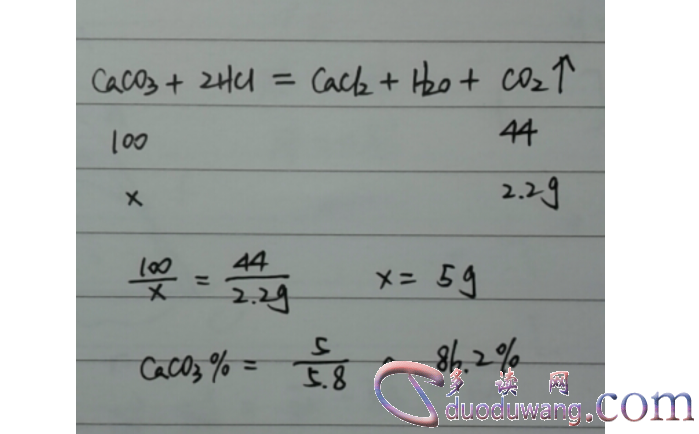 CaCO3 + 2HCl = CaCl2 + H2O + CO2↑
100 44
x 2.2g
100/x = 44/2.2g x = 5g
CaCO3% = 5/5.8 86.2%
多读网
duoduwang.com